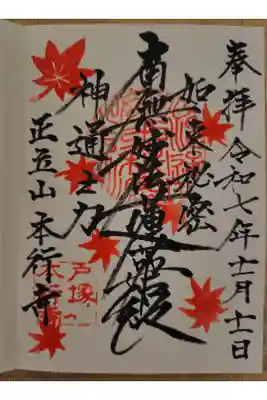 奉拝 令和七年十一月十一日
如来秘密
南無妙法蓮華経
神通之力
正立山 本行寺
戸塚の